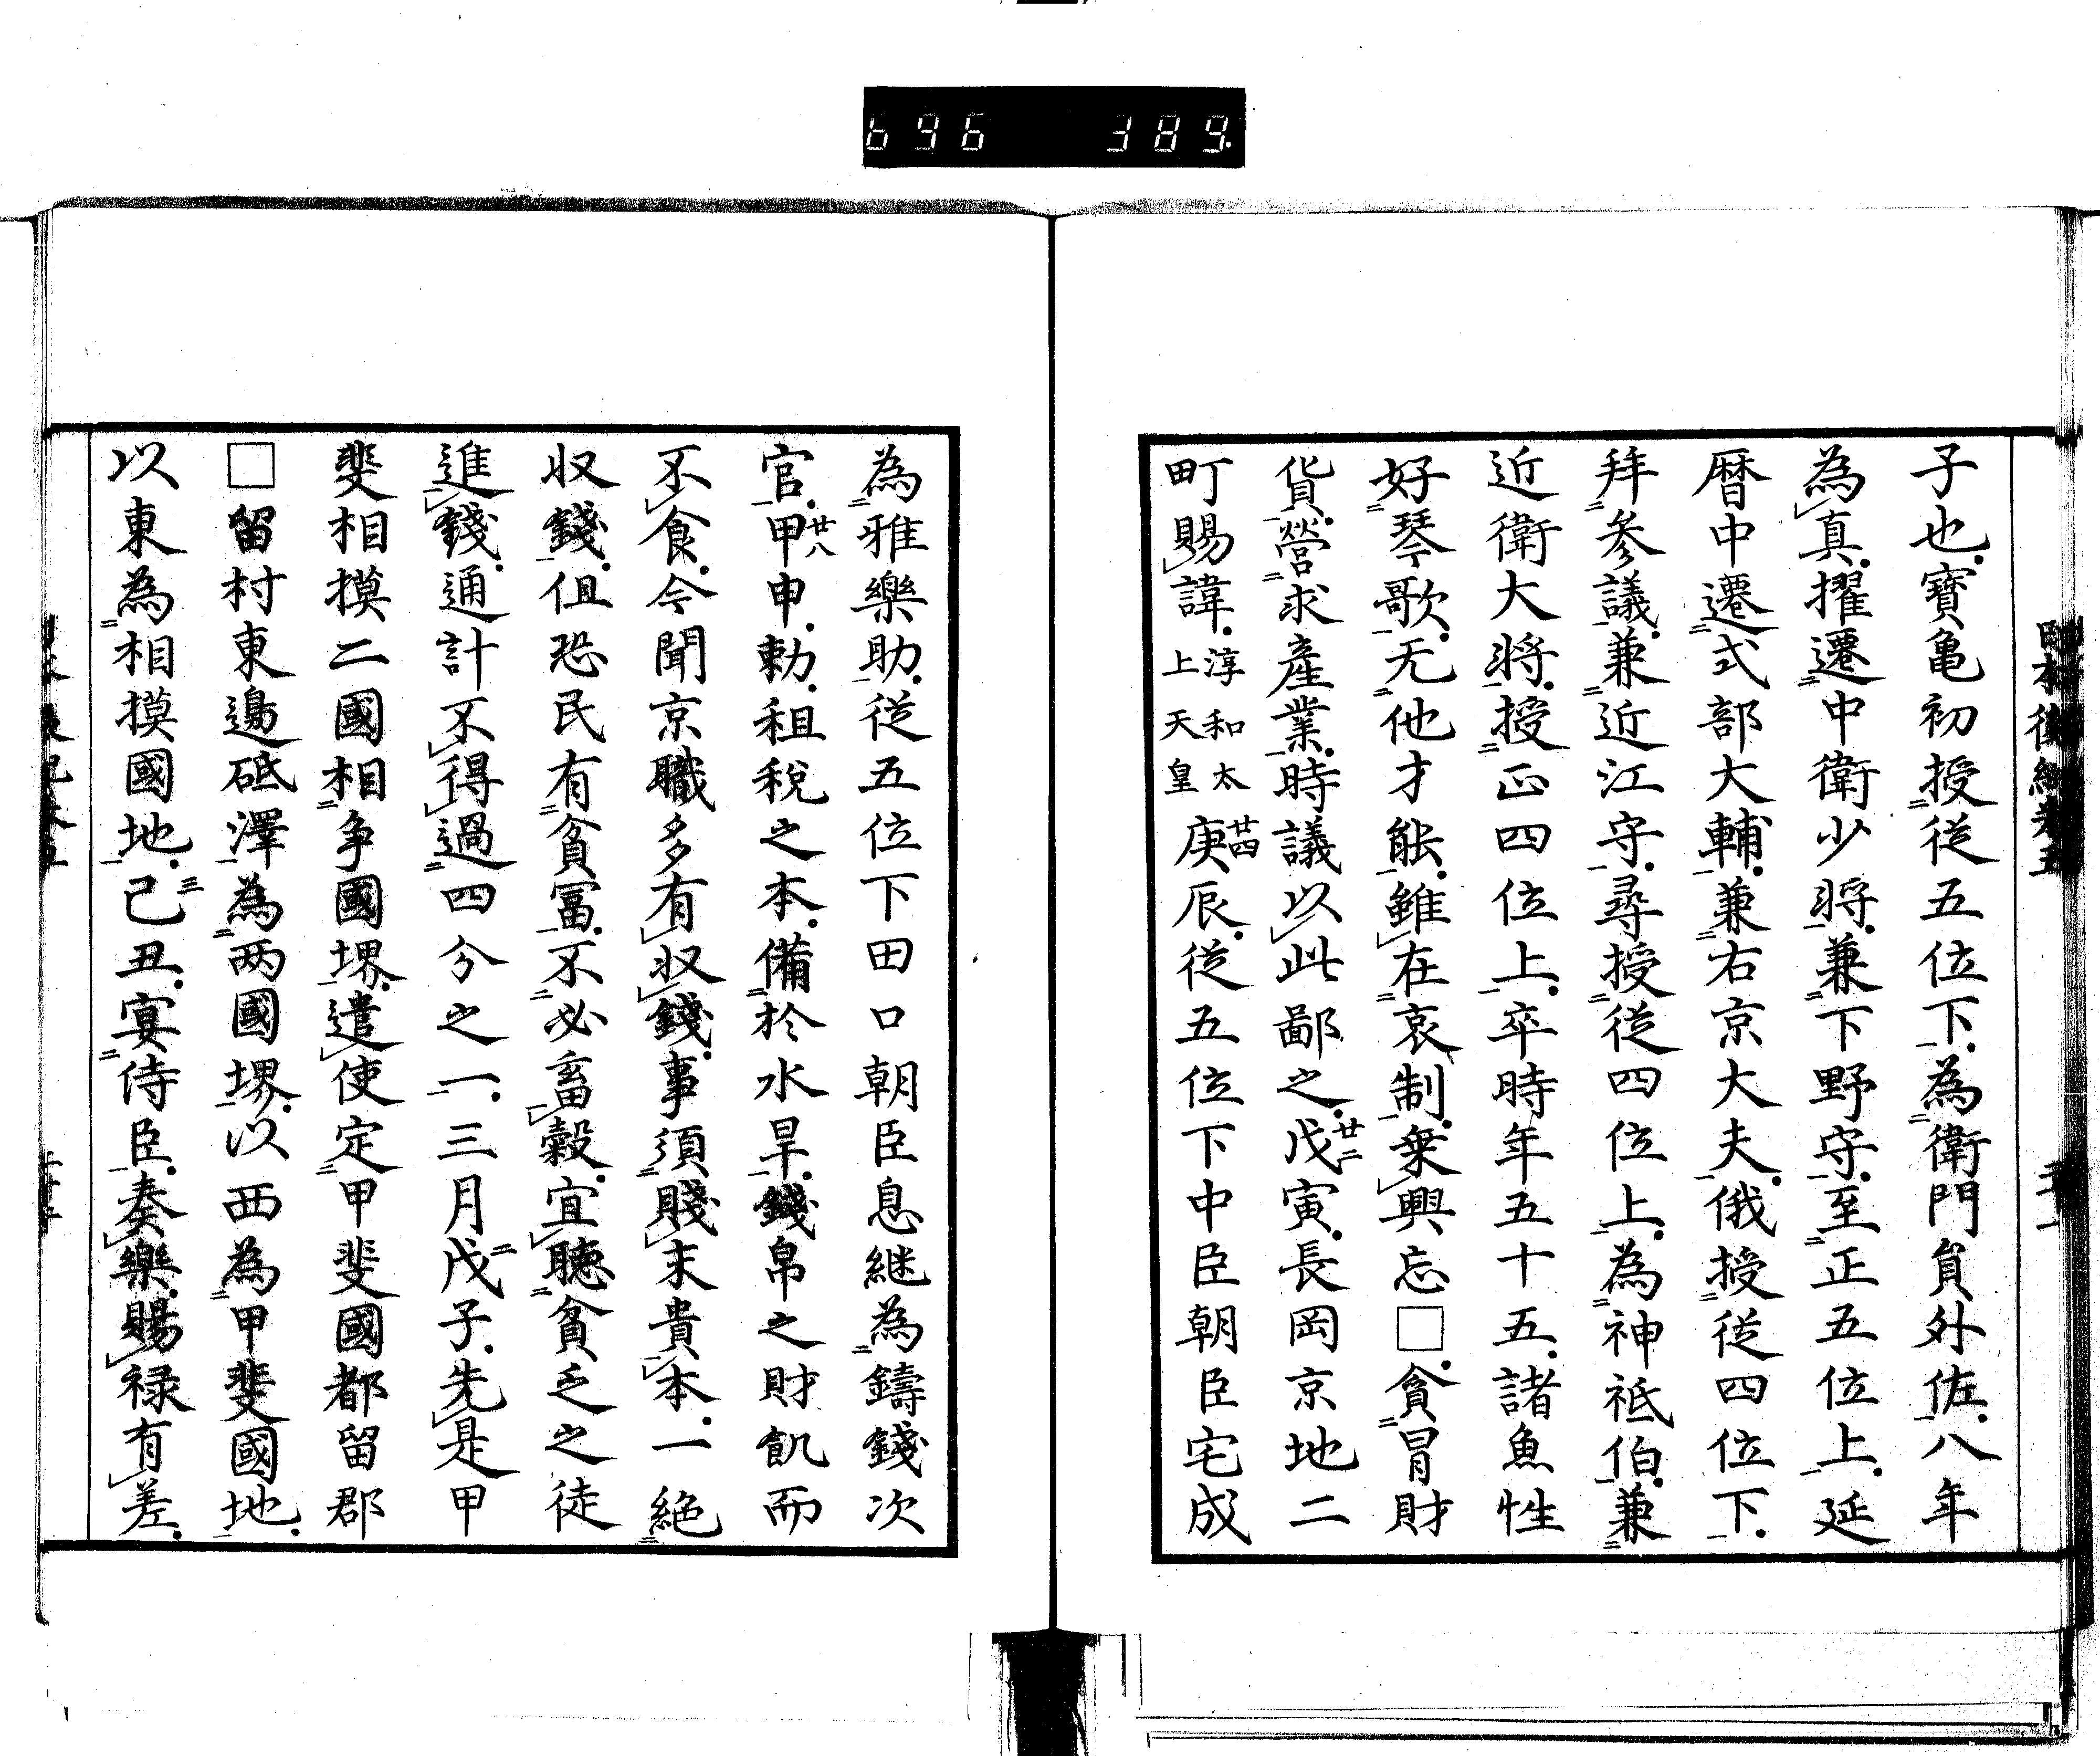 696 389
子也。寶亀初授従五位下。為衛門負外佐。八年
為真。擢遷中衛少将。兼下野守。至正五位上。延
暦中遷式部大輔。兼右京大夫。俄授従四位下。
拜参議。兼近江守。尋授従四位上。為神祇伯。兼
近衛大将。授正四位上。卒時年五十五。諸魚性
好琴歌。无他才能。雖在哀制。乗興忘□。貪冒財
貨。營求産業。時議以此鄙之。戊寅。廿二長岡京地二
町賜諱。淳和太上天皇庚辰。廿四従五位下中臣朝臣宅成
為雅樂助。従五位下田口朝臣息継為鑄錢次
官。甲申。廿八勅。租税之本。備於水旱。錢帛之財飢而
不食。今聞京職多有収錢。事須賤末貴本。一絶
収錢。但恐民有貧冨。不必畜穀。宜聴貧乏之徒
進錢。通計不得過四分之一。三月戊子。二先是甲
斐相摸二國相争國堺。遣使定甲斐國都留郡
□留村東邊砥澤為两國堺。以西為甲斐國地。
以東為相摸國地。己丑。三宴侍臣。奏樂。賜禄有差。